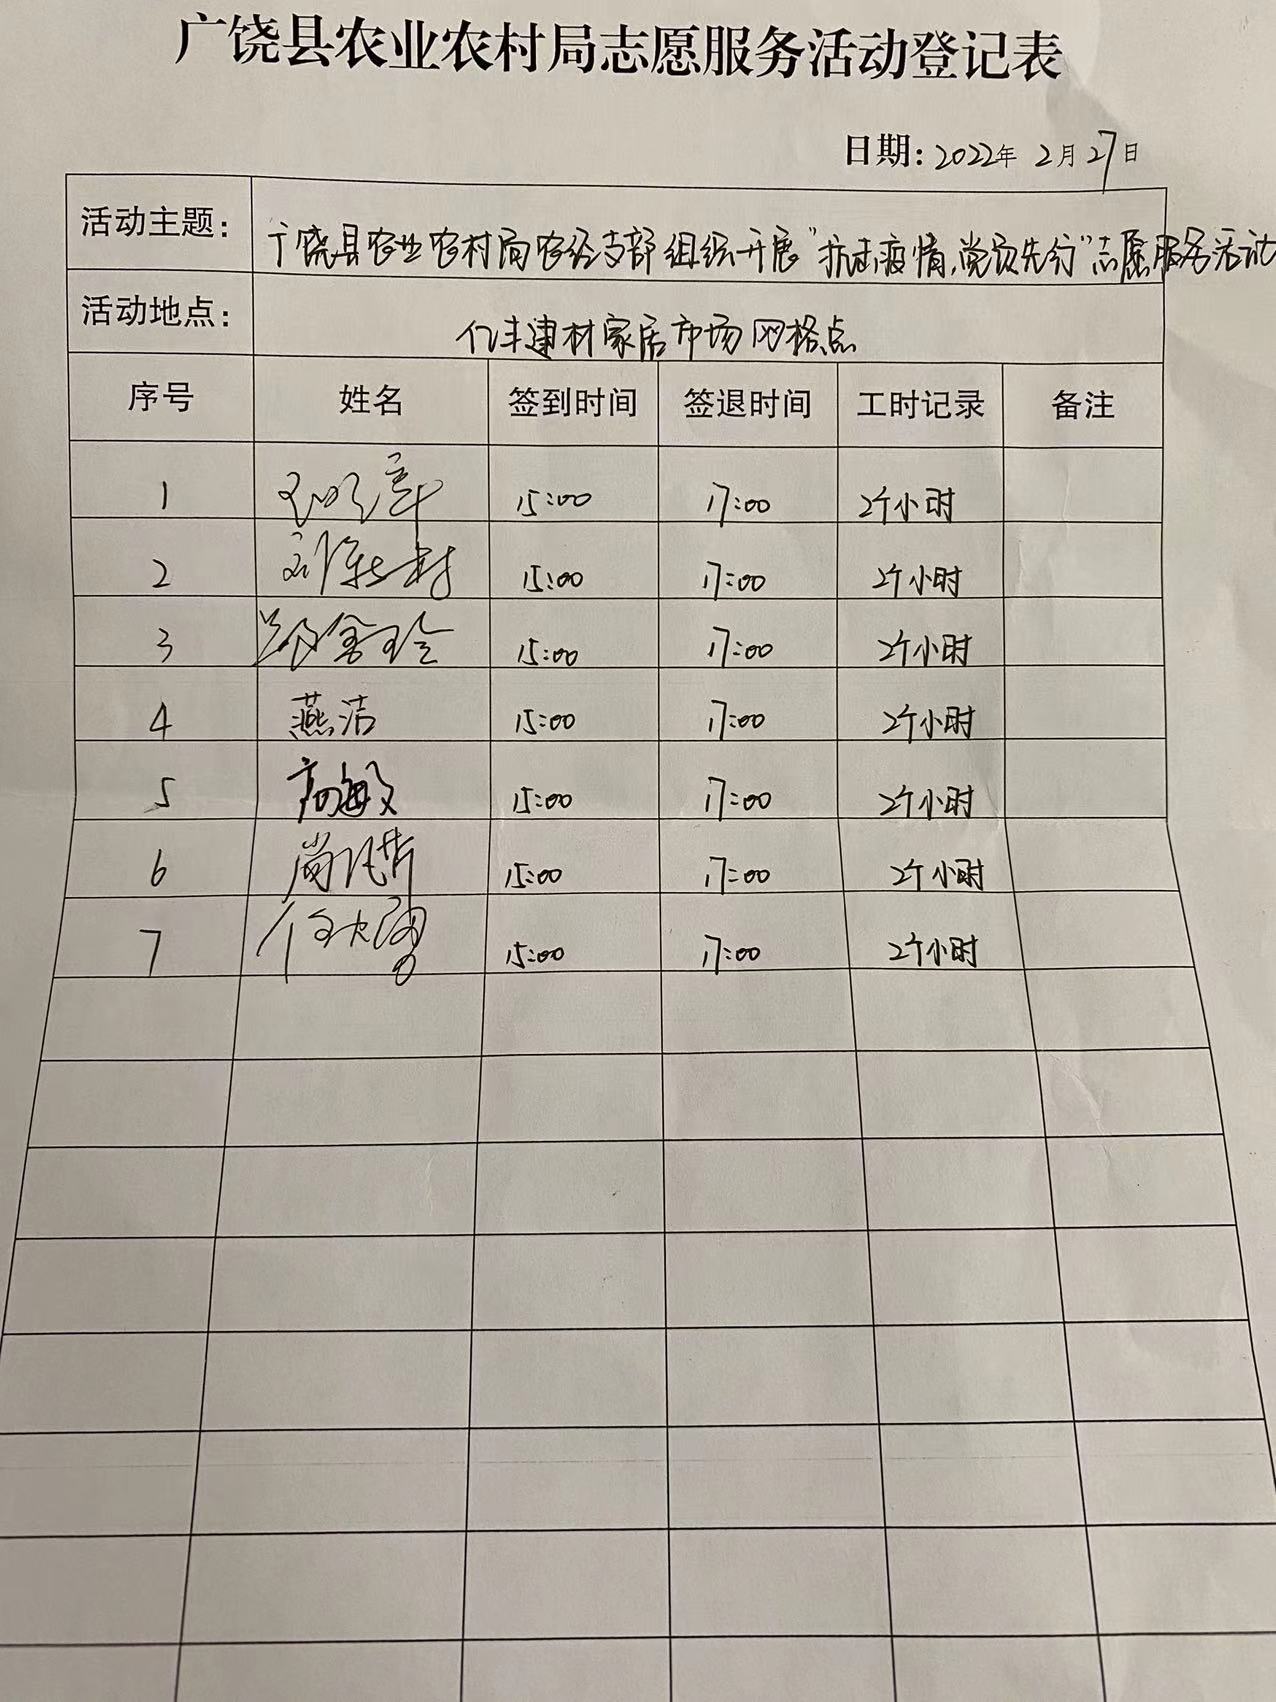 广饶县农业农村局志愿服务活动登记表
日期: 2022年 2月27日
活动主题: 广饶县农业农村局农经支部组织开展"抗击疫情,党员先行"志愿服务活动
活动地点: 亿丰建材家居市场网格点
序号 姓名 签到时间 签退时间 工时记录 备注
1 15:00 17:00 2个小时
2 15:00 17:00 2个小时
3 15:00 17:00 2个小时
4 燕洁 15:00 17:00 2个小时
5 高敏 15:00 17:00 2个小时
6 15:00 17:00 2个小时
7 15:00 17:00 2个小时